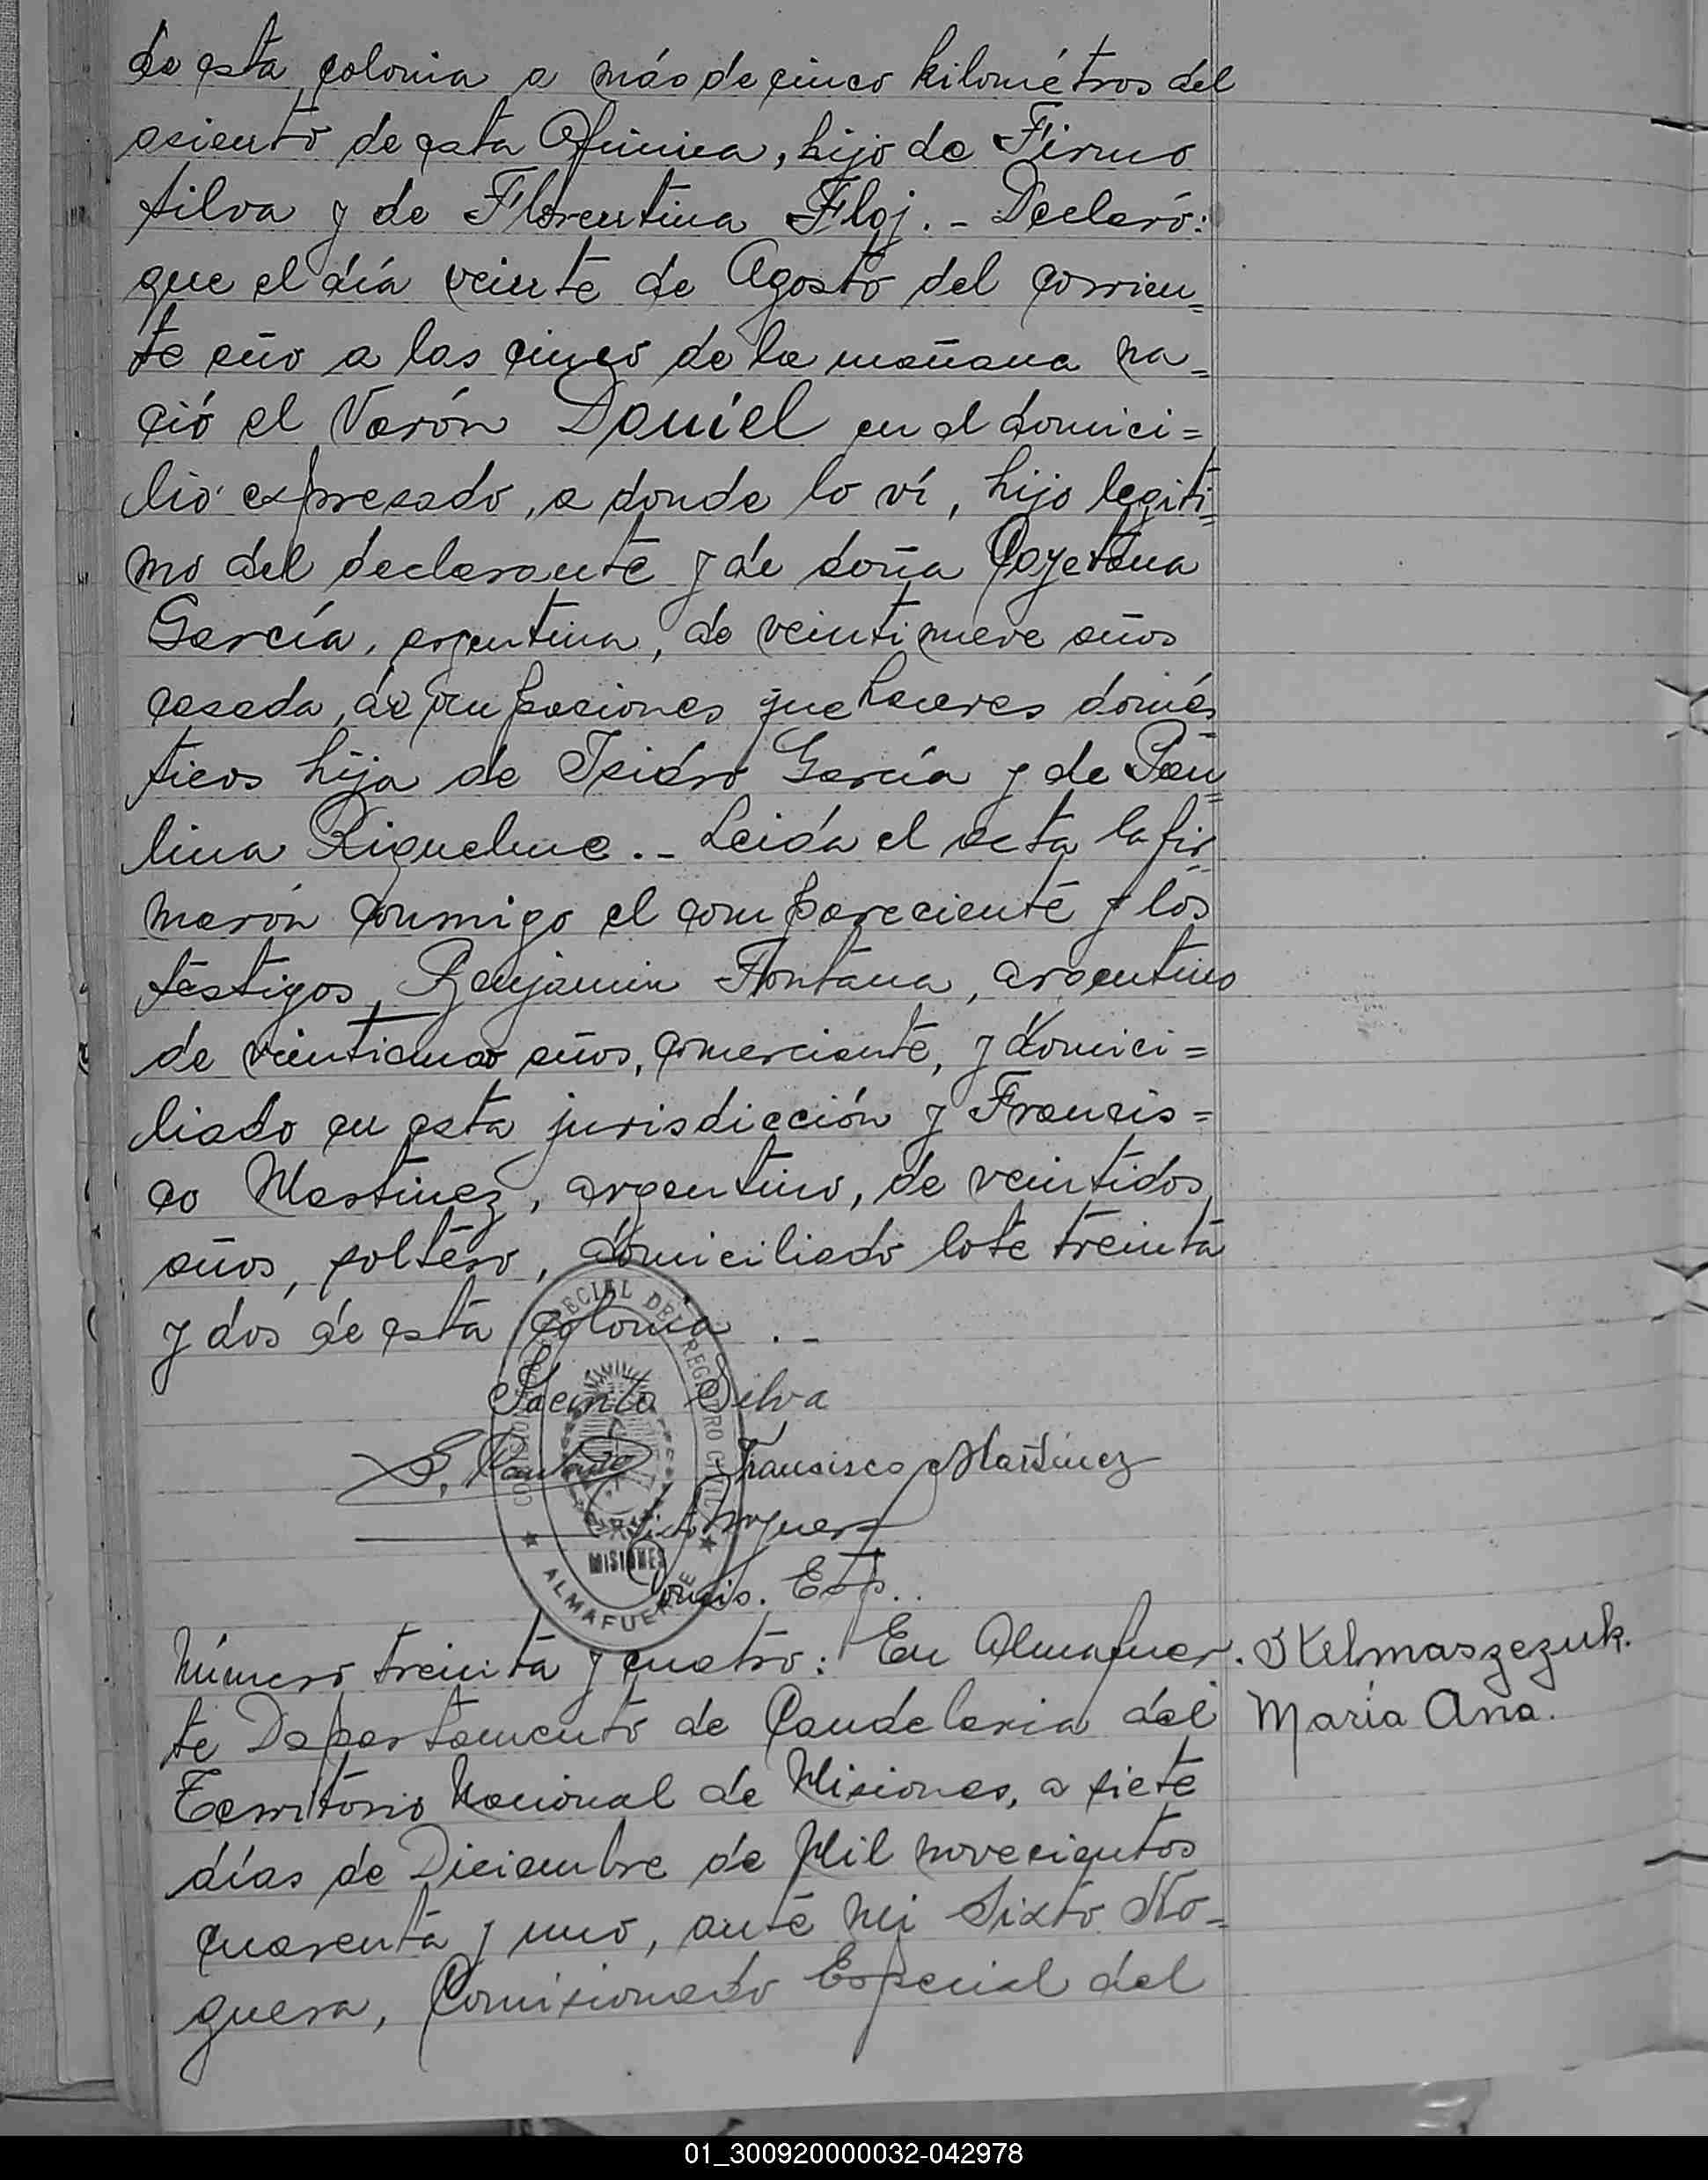 de esta colonia a más de cinco kilométros del
asiento de esta Oficina, hijo de Firmo
Silva y de Florentina Floj. - Declaró:
que el día veinte de Agosto del corrien=
te año a las cinco de la mañana na=
ció el Varón Daniel en el domici=
lio expresado, a donde lo ví, hijo legiti=
mo del declarante y de doña Cayetana
García, argentina, de veintinueve años
casada, de ocupaciones quehaceres domés
ticos hija de Isidro García y de Pau=
lina Riquelme. - Leida el acta la fir=
marón conmigo el compareciente y los
testigos, Benjamin Fontana, argentino
de vienticinco años, comerciante, y domici=
liado en esta jurisdicción y Francis=
co Mastinez, argentino, de veintidos
años, soltero, domiciliado lote treinta
y dos de esta colonia . -
Jacinto Silva
Francisco Martinez
Comis. Esp..
COMISIONADO ESPECIAL DEL REGISTRO CIVIL
MISIONES
ALMAFUERTE
Número treinta y cuatro: En Almafuer. Kelmaszezuk.
te Departamento de Candelaria del María Ana.
Territorio Nacional de Misiones, a siete
días de Diciembre de Mil novecientos
cuarenta y uno, ante Mi Sixto No=
guera, Comisionado Especial del
01_300920000032-042978